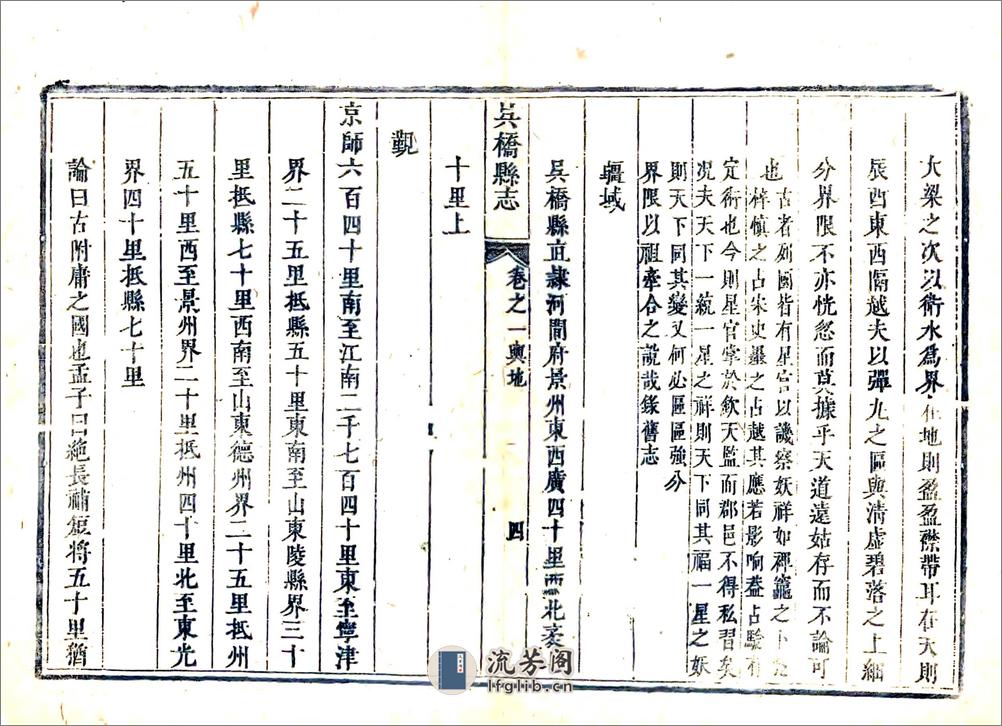 大梁之次以衛水為界在地則盈盈襟帶耳在天則
辰酉東西隔越夫以彈九之區與清虛碧落之上細
分界限不亦恍惚而莫據乎天道遠姑存而不論可
也古者列國皆有星官以譏察妖祥如裨竈之卜
梓慎之占宋史墨之占越其應若影响葢占驗有
定術也今則星官掌於欽天監而郡邑不得私習矣
况夫天下一統一星之祥則天下同其福一星之妖
則天下同其變又何必區區強分
界限以祖牽合之說哉錄舊志
疆域
吳橋縣直隸河間府景州東西廣四十里西北袤
吳橋縣志
卷之一輿地
四
十里上
觀
京師六百四十里南至江南二千七百四十里東至寧津
界二十五里抵縣五十里東南至山東陵縣界三十
里抵縣七十里西南至山東德州界二十五里抵州
五十里西至景州界二十里抵州四十里北至東光
界四十里抵縣七十里
論曰古附庸之國也孟子曰絕長補短將五十里猶
流芳阁
lfglib.cn